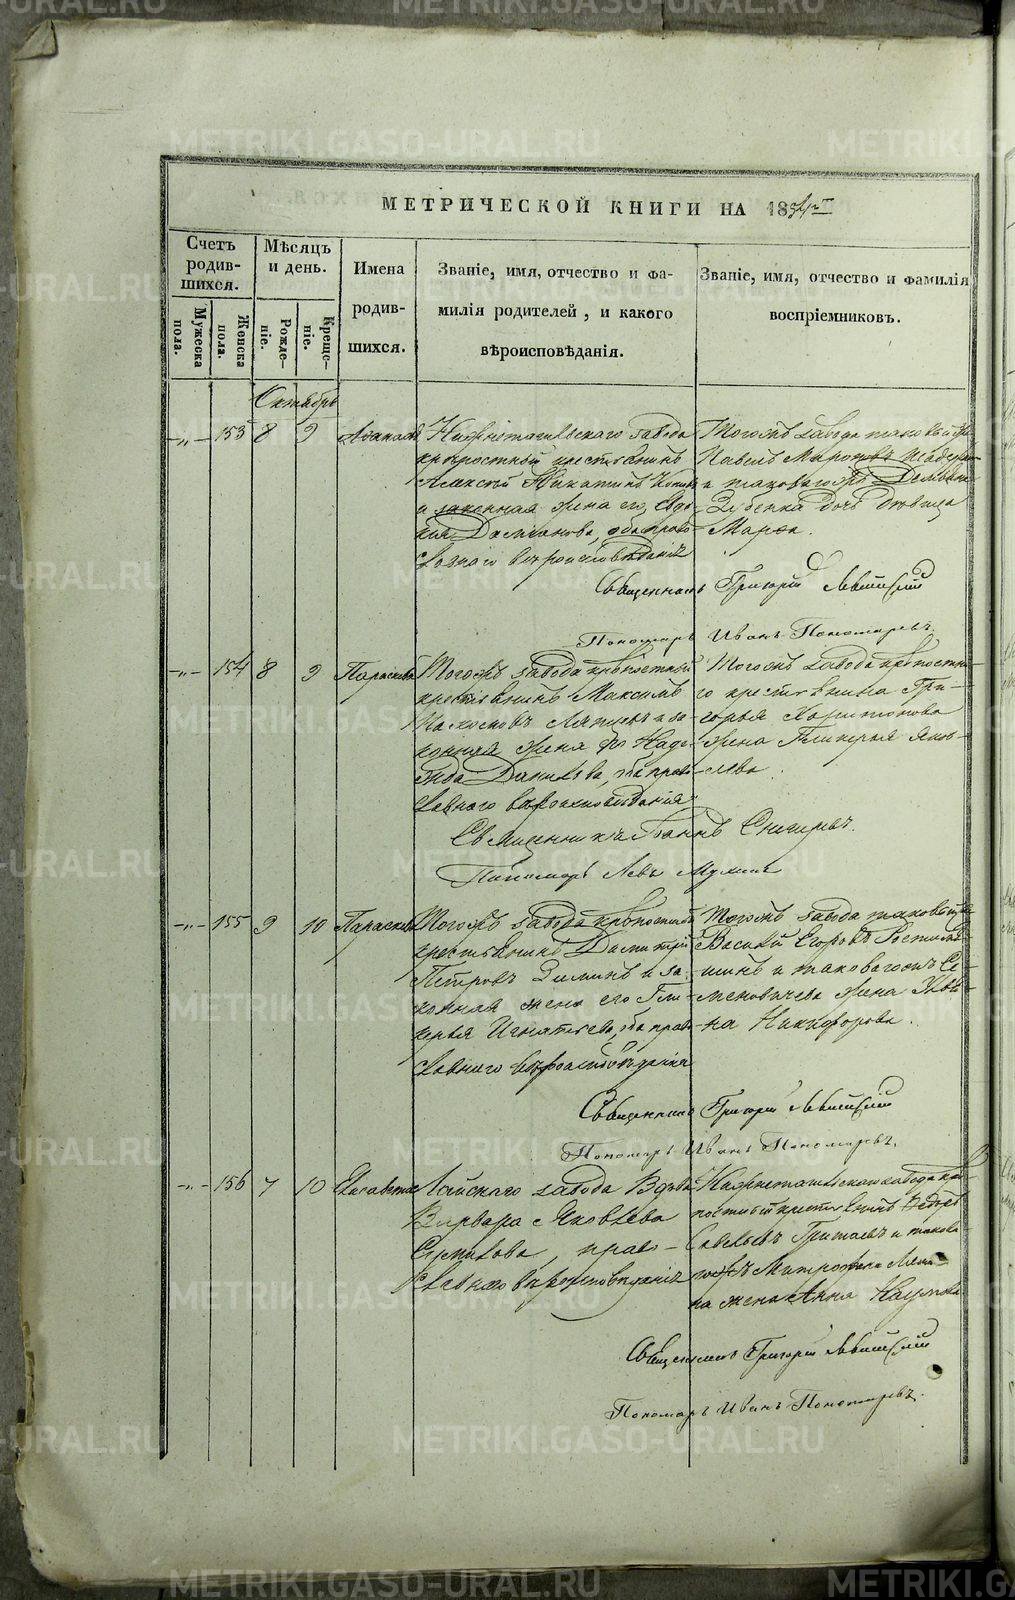 METRIKI.GASO-URAL.RU
МЕТРИЧЕСКОЙ КНИГИ НА 185
Счетъ родив-шихся.
Мужеска пола.
Женска пола.
Мѣсяцъ и день.
Рожде-ніе.
Креще-ніе.
Имена
родив-
шихся.
Званіе, имя, отчество и фа-
милія родителей, и какого
вѣроисповѣданія.
Званіе, имя, отчество и фамилія
воспріемниковъ.
Октябрь
153 8 9
Нижнетагильскаго завода
крѣпостный крестьянинъ
Алексѣй
и законная жена его Евдо-
кія оба право-
славнаго вѣроисповѣданія
Тогожъ завода таковый же
Павелъ Мироновъ
и таковагожъ
дочь дѣвица
Марѳа.
Священникъ Григорій Левитскій
Пономарь Иванъ Пономаревъ.
154 8 9 Параскева
Тогожъ завода крѣпостный
крестьянинъ Максимъ
и за-
конная жена его Наде-
жда Данилова, оба право-
славнаго вѣроисповѣданія
Тогожъ завода крѣпостна-
го крестьянина Гри-
горья Харитонова
жена Гликерья Яков-
лева.
Священникъ Іоаннъ Снегиревъ.
Пономарь Левъ
155 9 10 Параскева
Тогожъ завода крѣпостный
крестьянинъ Димитрій
Петровъ Зиминъ и за-
конная жена его Гли-
керья Игнатьева, оба право-
славнаго вѣроисповѣданія
Тогожъ завода таковый же
Василій Егоровъ
и таковагожъ Се-
меновичева жена Улья-
на Никифорова.
Священникъ Григорій Левитскій
Пономарь Иванъ Пономаревъ.
156 7 10 Елисавета
Лайскаго завода Вдова
Варвара Яковлева
право-
славнаго вѣроисповѣданія
Нижнетагильскаго завода крѣ-
постный крестьянинъ Ѳедоръ
Савельевъ и таково-
гожъ Митрофана
на жена Анна Наумова
Священникъ Григорій Левитскій
Пономарь Иванъ Пономаревъ.